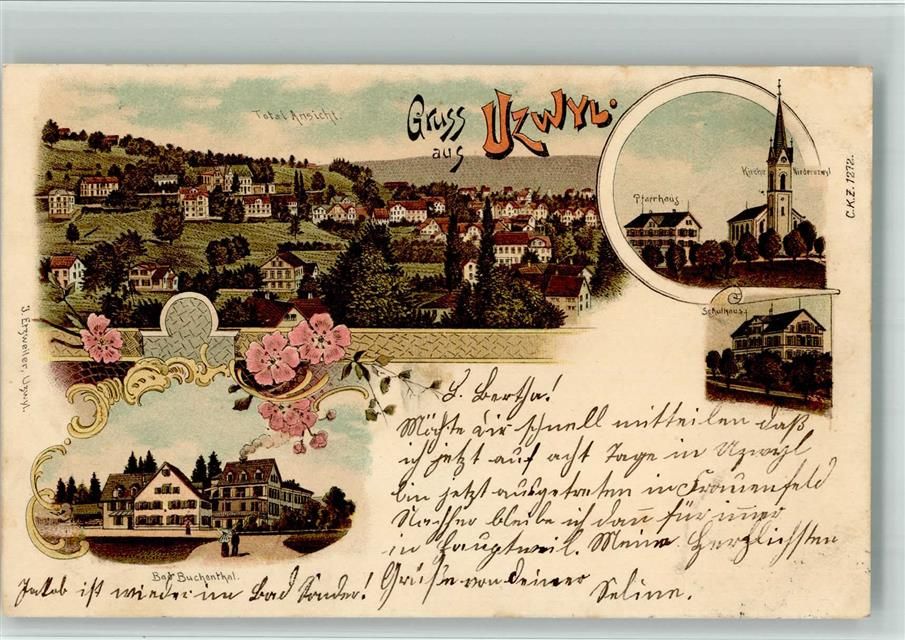 Total Ansicht.
Gruss
aus
UZWYL.
Kirche Niederuzwyl
Pfarrhaus
C.K.Z. 1272.
Schulhaus.
J. Erzweiler, Uzwyl.
L. Bertha!
Möchte dir schnell mitteilen daß
ich jetzt auf acht Tage in Uzwyl
bin jetzt ausgetreten in Frauenfeld
Nachher bleibe ich dann für immer
in Hauptweil. Meine Herzlichsten
Grüße von deiner
Seline.
Bad Buchenthal.
Jakob ist wieder im Bad Sonder!